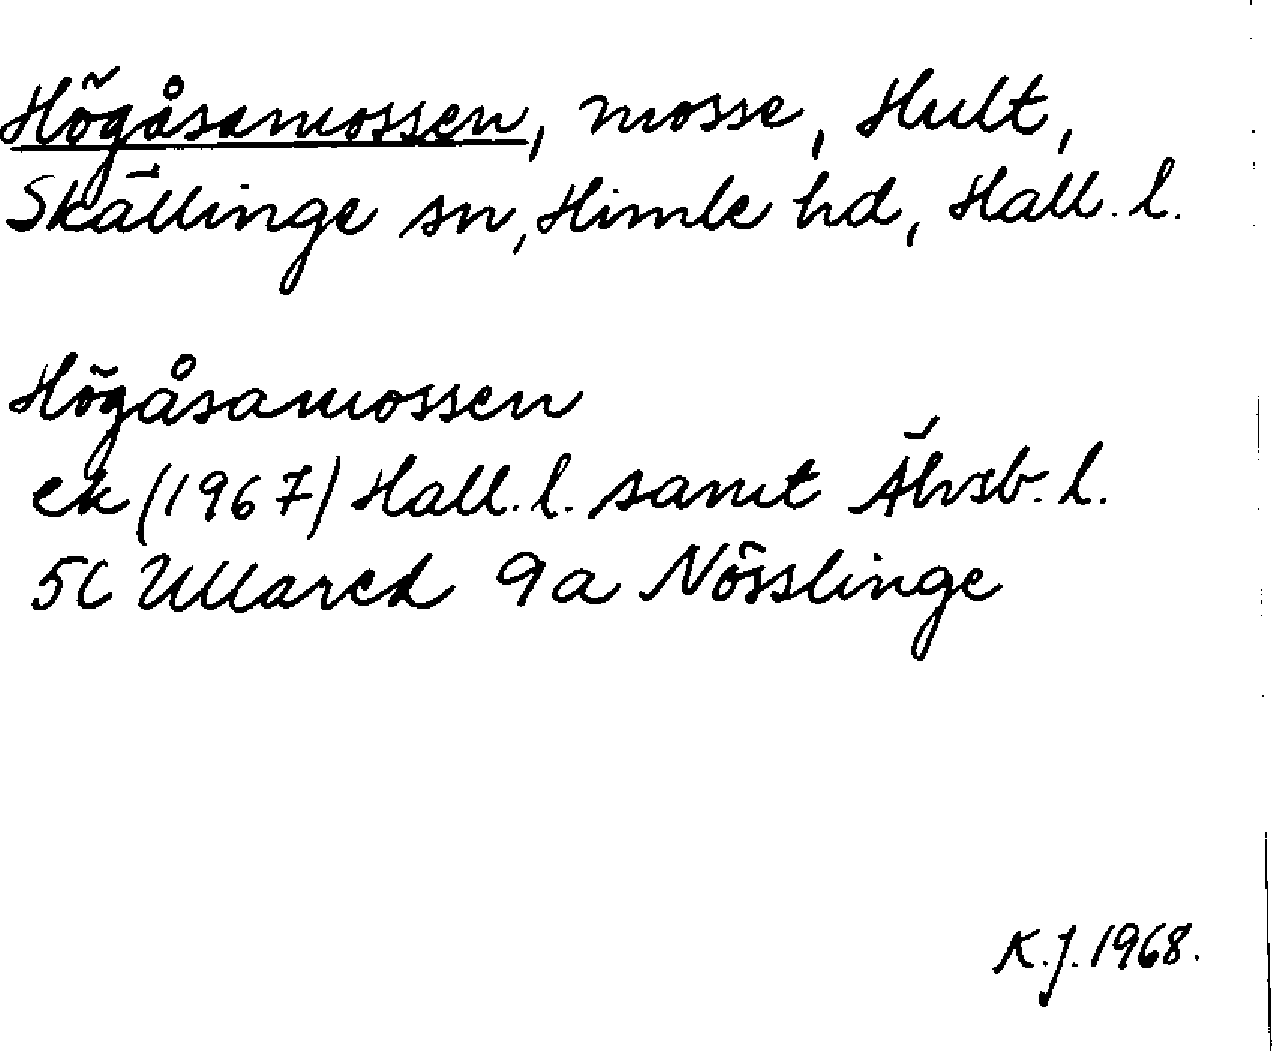 Högåsamossen, mosse, Hult,
Skällinge sn, Himle hd, Hall. l.
Högåsamossen
ek (1967) Hall. l. samt Älvsb. l.
5C Ullared 9a Nösslinge
K.J. 1968.